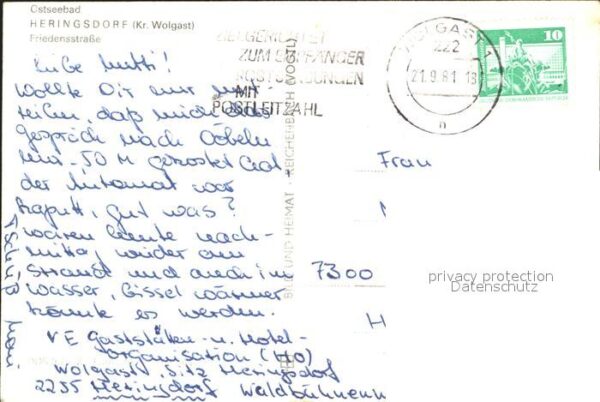 Ostseebad
HERINGSDORF (Kr. Wolgast)
Friedensstraße
ZIELGERICHTET
ZUM EMPFÄNGER
POSTSENDUNGEN
MIT
POSTLEITZAHL
WOLGAST 1
222
21.9.81-18
n
10
Liebe Mutti!
Wollte Dir nur
teilen, daß mich das
gespräch nach Döbeln
nur -,50 M gekostet hat
der Automat war
kaputt, gut was?
waren heute nach-
mittag wieder am
Strand und auch im
Wasser, bissel wärmer
könnte es werden.
Tschüß
VE Gaststätten- u. Hotel-
organisation (HO)
Wolgast, Sitz Heringsdorf
2255 Heringsdorf Waldbühnenw
BILD UND HEIMAT · REICHENBACH (VOGTL)
Frau
7300
H
privacy protection
Datenschutz